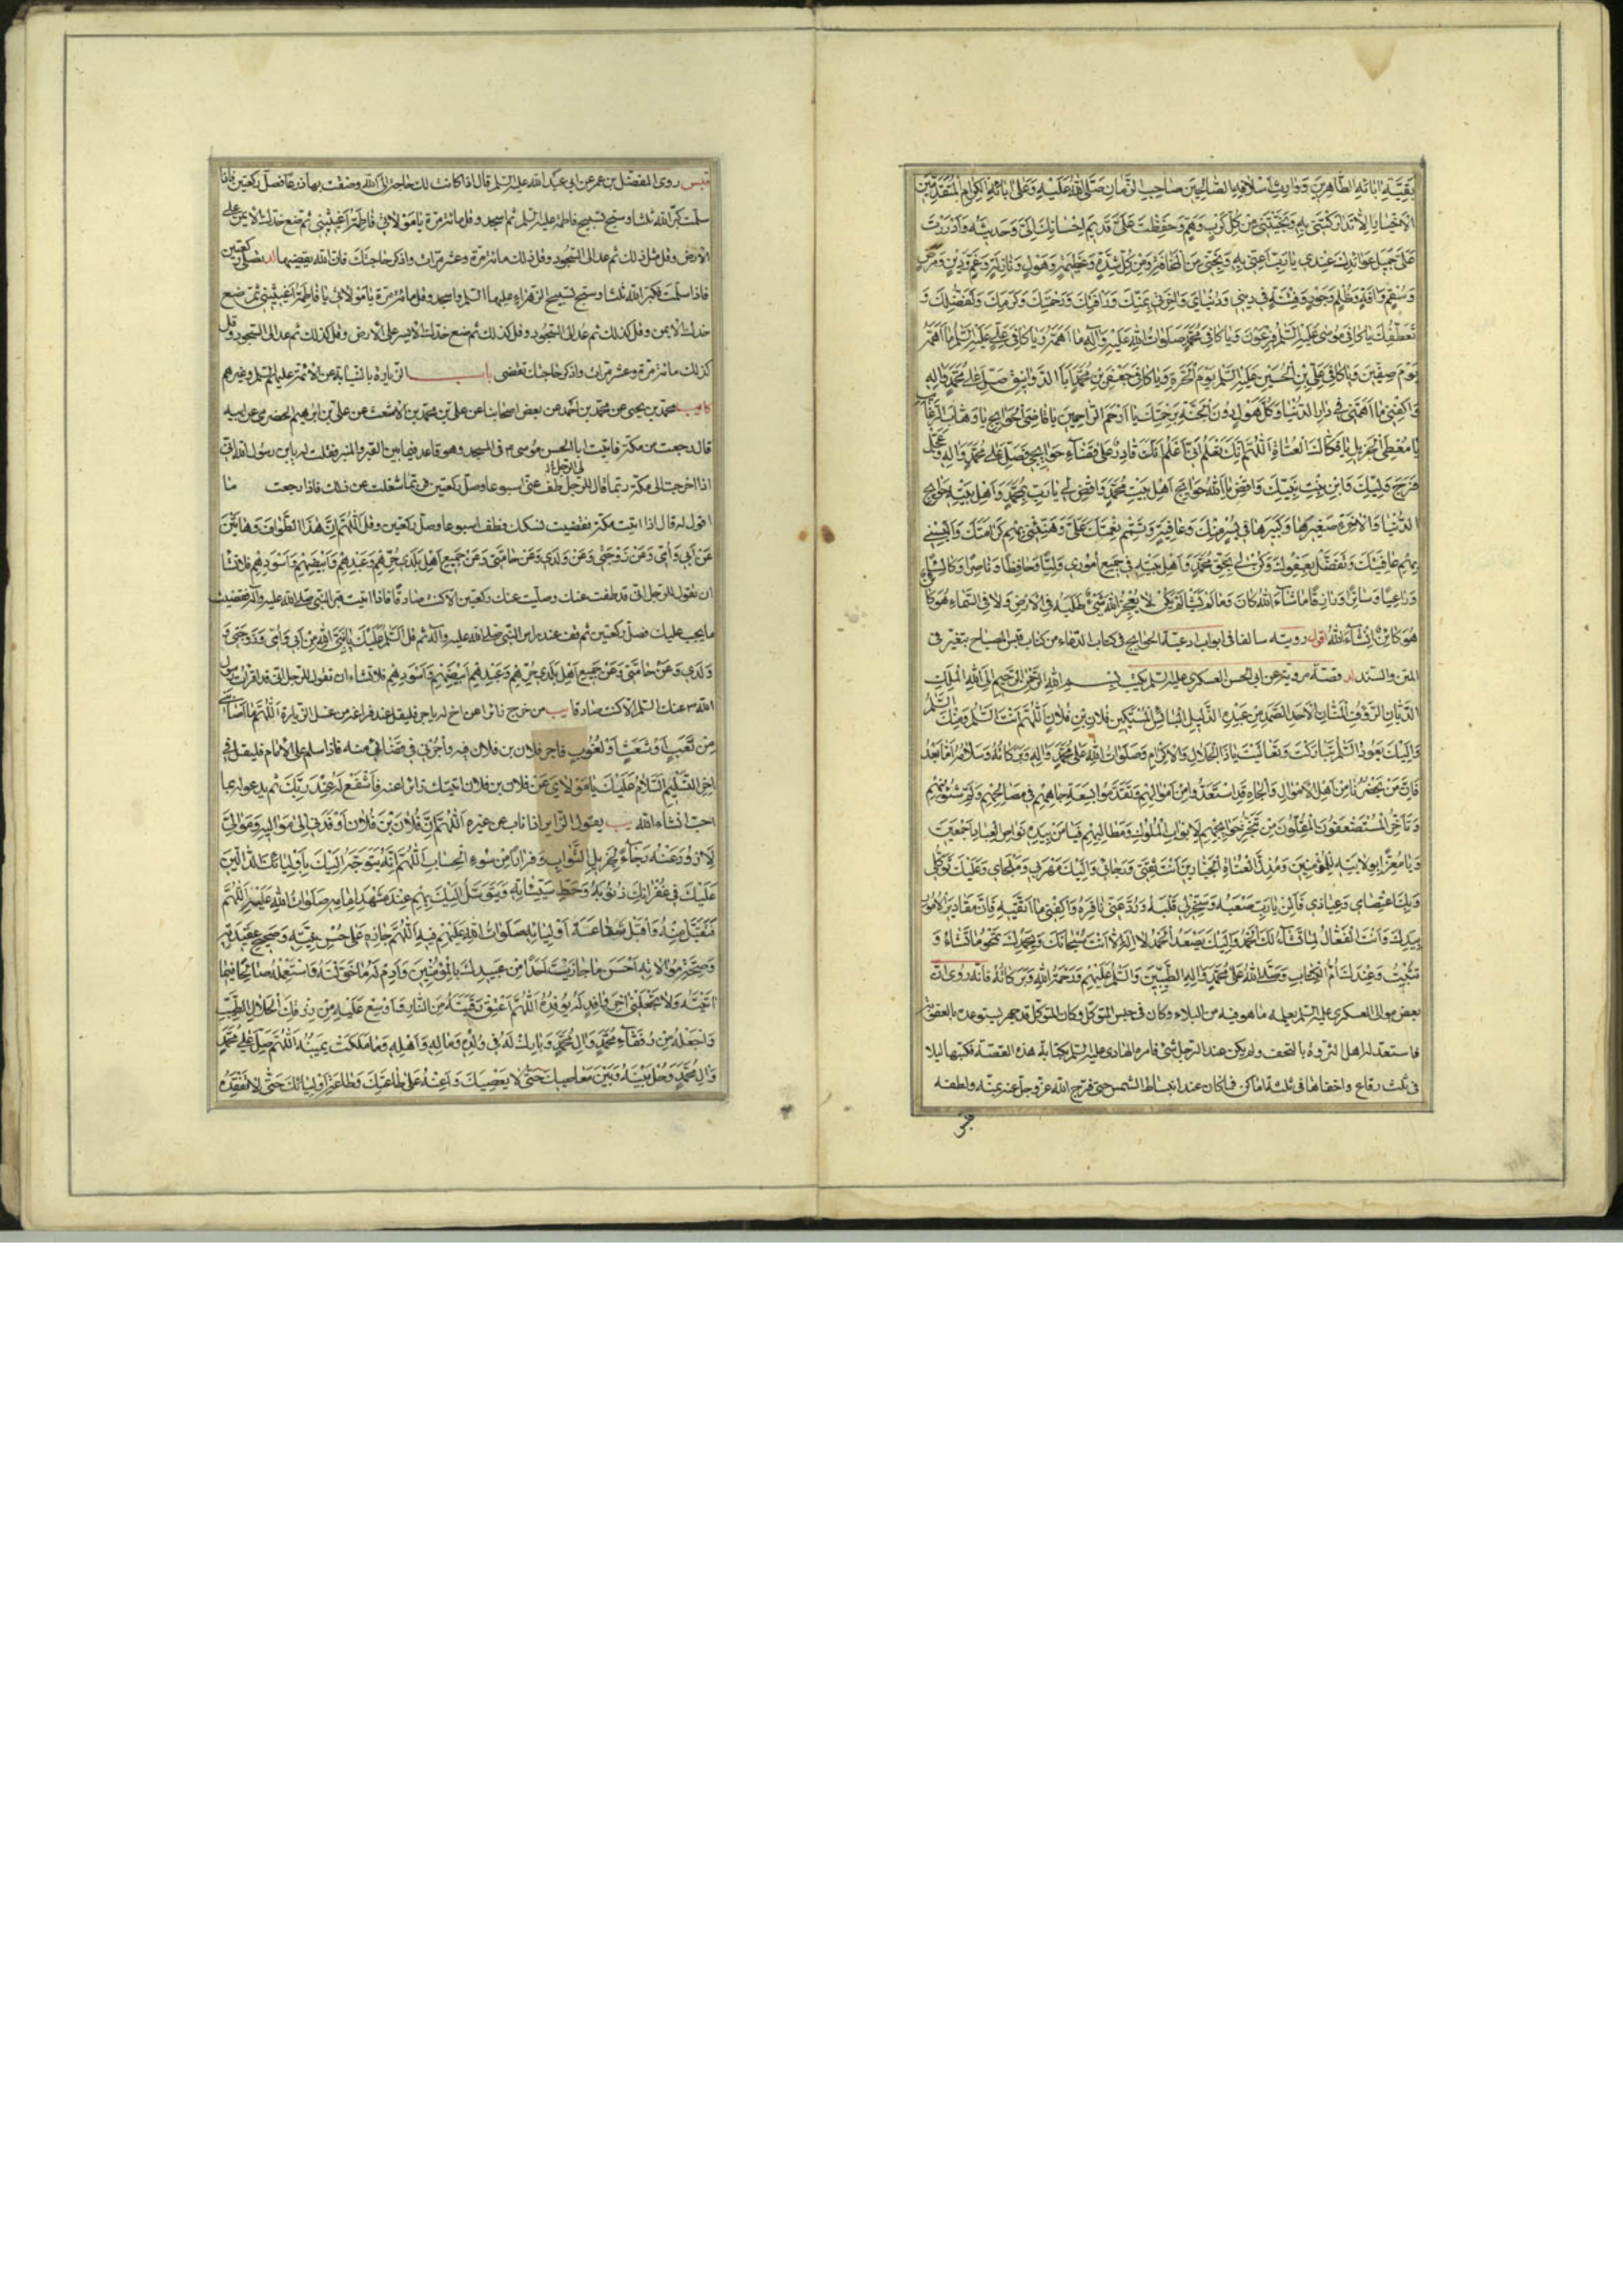 بَقِيَّةِ اٰبٰائِهِ الطّٰاهِرِينَ وَوٰارِثِ اَسْلٰافِهِ الصّٰالِحِينَ صٰاحِبِ الزَّمٰانِ صَلَّى اللهُ عَلَيْهِ وَعَلىٰ اٰبٰائِهِ الْكِرٰامِ الْمُتَقَدِّمِينَ
الْاَخْيٰارِ اِلّٰا تَدٰارَكْتَنِى بِهِ وَنَجَّيْتَنِى مِنْ كُلِّ كَرْبٍ وَهَمٍّ وَحَفِظْتَ عَلَىَّ قَدِيمَ اِحْسٰانِكَ اِلَىَّ وَحَدِيثَهُ وَاَدْرَرْتَ
عَلَىَّ جَمِيلَ عَوٰائِدِكَ عِنْدِى يٰا رَبِّ اَعِنِّى بِهِ وَنَجِّنِى مِنَ الْمَخٰافَةِ وَمِنْ كُلِّ شِدَّةٍ وَعَظِيمَةٍ وَهَوْلٍ وَنٰازِلَةٍ وَغَمٍّ وَدَيْنٍ وَمَرَضٍ
وَسُقْمٍ وَاٰفَةٍ وَظُلْمٍ وَجَوْرٍ وَفِتْنَةٍ فِى دِينِى وَدُنْيٰاىَ وَاٰخِرَتِى بِمَنِّكَ وَرَأْفَتِكَ وَرَحْمَتِكَ وَكَرَمِكَ وَتَفَضُّلِكَ وَ
تَعَطُّفِكَ يٰا كٰافِىَ مُوسىٰ عَلَيْهِ السَّلَمُ فِرْعَوْنَ وَيٰا كٰافِىَ مُحَمَّدٍ صَلَوٰاتُ اللهِ عَلَيْهِ وَآلِهِ مٰا اَهَمَّهُ وَيٰا كٰافِىَ عَلِىٍّ عَلَيْهِ السَّلَمُ مٰا اَهَمَّهُ
يَوْمَ صِفِّينَ وَيٰا كٰافِىَ عَلِىِّ بْنِ الْحُسَيْنِ عَلَيْهِ السَّلَمُ يَوْمَ الْحَرَّةِ وَيٰا كٰافِىَ جَعْفَرِ بْنِ مُحَمَّدٍ اَبَا الدَّوٰانِيقِ صَلِّ عَلىٰ مُحَمَّدٍ وَاٰلِهِ
وَاكْفِنِى مٰا اَهَمَّنِى فِى دٰارِ الدُّنْيٰا وَكُلَّ هَوْلٍ دُونَ الْجَنَّةِ بِرَحْمَتِكَ يٰا اَرْحَمَ الرّٰاحِمِينَ يٰا قٰاضِىَ الْحَوٰائِجِ يٰا وَهّٰابَ الرَّغٰائِبِ
يٰا مُعْطِىَ الْجَزِيلِ يٰا فَكّٰاكَ الْعُنٰاةِ اَللّٰهُمَّ اِنَّكَ تَعْلَمُ اَنِّى اَعْلَمُ اَنَّكَ قٰادِرٌ عَلىٰ قَضٰاءِ حَوٰائِجِى فَصَلِّ عَلىٰ مُحَمَّدٍ وَاٰلِهِ وَعَجِّلْ
فَرَجَ وَلِيِّكَ وَابْنِ بِنْتِ نَبِيِّكَ وَاقْضِ يٰا اَللهُ حَوٰائِجَ اَهْلِ بَيْتِ مُحَمَّدٍ وَاقْضِ لِى يٰا رَبِّ بِمُحَمَّدٍ وَاَهْلِ بَيْتِهِ حَوٰائِجَ
الدُّنْيٰا وَالْاٰخِرَةِ صَغِيرَهٰا وَكَبِيرَهٰا فِى يُسْرٍ مِنْكَ وَعٰافِيَةٍ وَتَمِّمْ نِعْمَتَكَ عَلَىَّ وَهَنِّئْنِى بِهِمْ كَرٰامَتَكَ وَاَلْبِسْنِى
بِهِمْ عٰافِيَتَكَ وَتَفَضَّلْ بِعَفْوِكَ وَكُنْ لِى بِحَقِّ مُحَمَّدٍ وَاَهْلِ بَيْتِهِ فِى جَمِيعِ اُمُورِى وَلِيًّا وَحٰافِظًا وَنٰاصِرًا وَكٰالِئًا
وَرٰاعِيًا وَسٰاتِرًا وَرٰازِقًا مٰا شٰاءَ اللهُ كٰانَ وَمٰا لَمْ يَشَأْ لَمْ يَكُنْ لٰا يُعْجِزُ اللهَ شَىْءٌ طَلَبَهُ فِى الْاَرْضِ وَلٰا فِى السَّمٰاءِ هُوَ كٰائِنٌ
هُوَ كٰائِنٌ اِنْ شٰاءَ اللهُ اقول رويته سالفا فى ابواب ادعية الحوايج فى كتاب الدعاء من كتاب قبس المصباح بتغيير فى
المتن والسند قصة مروية عن ابى الحسن العسكرى عليه السلم يكتب بِسْمِ اللهِ الرَّحْمٰنِ الرَّحِيمِ اِلَى اللهِ الْمَلِكِ
الدَّيّٰانِ الرَّؤُفِ الْمَنّٰانِ الْاَحَدِ الصَّمَدِ مِنْ عَبْدِهِ الذَّلِيلِ الْبٰائِسِ الْمُسْتَكِينِ فُلٰانِ بْنِ فُلٰانٍ اَللّٰهُمَّ اَنْتَ السَّلٰمُ وَمِنْكَ السَّلٰمُ
وَاِلَيْكَ يَعُودُ السَّلٰمُ تَبٰارَكْتَ وَتَعٰالَيْتَ يٰا ذَا الْجَلٰالِ وَالْاِكْرٰامِ وَصَلَوٰاتُ اللهِ عَلىٰ مُحَمَّدٍ وَاٰلِهِ وَبَرَكٰاتُهُ وَسَلٰامُهُ اَمّٰا بَعْدُ
فَاِنَّ مَنْ يَحْضُرُنٰا مِنْ اَهْلِ الْاَمْوٰالِ وَالْجٰاهِ قَدِ اسْتَعَدُّوا مِنْ اَمْوٰالِهِمْ وَتَقَدَّمُوا بِسَعَةِ جٰاهِهِمْ فِى مَصٰالِحِهِمْ وَلَمِّ شُؤُنِهِمْ
وَتَأَخَّرَ الْمُسْتَضْعَفُونَ الْمُقِلُّونَ مِنْ تَنَجُّزِ حَوٰائِجِهِمْ لِاَبْوٰابِ الْمُلُوكِ وَمَطٰالِبِهِمْ فَيٰا مَنْ بِيَدِهِ نَوٰاصِى الْعِبٰادِ اَجْمَعِينَ
وَيٰا مُعِزًّا بِوِلٰايَتِهِ لِلْمُؤْمِنِينَ وَمُذِلَّ الْعُتٰاةِ الْجَبّٰارِينَ اَنْتَ ثِقَتِى وَرَجٰائِى وَاِلَيْكَ مَهْرَبِى وَمَلْجَاىَ وَعَلَيْكَ تَوَكُّلِى
وَبِكَ اعْتِصٰامِى وَعِيٰاذِى فَاَلِنْ يٰا رَبِّ صَعْبَهُ وَسَخِّرْ لِى قَلْبَهُ وَرُدَّ عَنِّى نٰافِرَهُ وَاكْفِنِى مٰا اَتَّقِيهِ فَاِنَّ مَقٰادِيرَ الْاُمُورِ
بِيَدِكَ وَاَنْتَ الْفَعّٰالُ لِمٰا تَشٰاءُ لَكَ الْحَمْدُ وَاِلَيْكَ يَصْعَدُ الْحَمْدُ لٰا اِلٰهَ اِلّٰا اَنْتَ سُبْحٰانَكَ وَبِحَمْدِكَ تَمْحُو مٰا تَشٰاءُ وَ
تُثْبِتُ وَعِنْدَكَ اُمُّ الْكِتٰابِ وَصَلَّى اللهُ عَلىٰ مُحَمَّدٍ وَاٰلِهِ الطَّيِّبِينَ وَالسَّلٰمُ عَلَيْهِمْ وَرَحْمَةُ اللهِ وَبَرَكٰاتُهُ فانه روى ان
بعض موالى العسكرى عليه السلم يعلمه ما هو فيه من البلاء وكان فى حبس المتوكل وكان المتوكل قد جهر ليستوعده بالعقوبة
فاستعد له اهل الثروة بالتحف ولم يكن عند الرجل شئ فامره الهادى عليه السلم بكتابة هذه القصة فكتبها ليلا
فى ثلث رقاع واخفاها فى ثلثة اماكن فما كان عند انبساط الشمس حتى فرج الله عز وجل عنه بمنه ولطفه
قبس
قبس روى المفضل بن عمر عن ابى عبد الله عليه السلم قال اذا كانت لك حاجة الى الله وضقت بها ذرعا فصل ركعتين فاذا
سلمت كبر الله ثلثا وسبح تسبيح فاطمة عليها السلم ثم اسجد وقل مائة مرة يٰا مَوْلٰاتِى فٰاطِمَةُ اَغِيثِينِى ثم ضع خدك الايمن على
الارض وقل مثل ذلك ثم عد الى السجود وقل ذلك مائة مرة وعشر مرات واذكر حاجتك فان الله يقضيها تصلى ركعتين
فاذا سلمت فكبر الله ثلثا وسبح تسبيح الزهراء عليها السلم واسجد وقل مائة مرة يٰا مَوْلٰاتِى يٰا فٰاطِمَةُ اَغِيثِينِى ثم ضع
خدك الايمن وقل كذلك ثم عد الى السجود وقل كذلك ثم ضع خدك الايسر على الارض وقل كذلك ثم عد الى السجود وقل
كذلك مائة مرة وعشر مرات واذكر حاجتك تقضى باب الزيارة بالنيابة عن الائمة عليهم السلم وغيرهم
محمد بن يحيى عن محمد بن احمد عن بعض اصحابنا عن على بن محمد بن الاشعث عن على بن ابراهيم الحضرمى عن ابيه
قال رجعت من مكة فاتيت ابا الحسن موسى م فى المسجد وهو قاعد فيما بين القبر والمنبر فقلت له يا بن رسول الله انى
اذا خرجت الى مكة ربما قال لى الرجل طف عنى اسبوعا وصل ركعتين فربما شغلت عن ذلك فاذا رجعت ما
اقول له قال اذا اتيت مكة فقضيت نسكك فطف اسبوعا وصل ركعتين وقل اَللّٰهُمَّ اِنَّ هٰذَا الطَّوٰافَ وَهٰاتَيْنِ
عَنْ اَبِى وَاُمِّى وَعَنْ زَوْجَتِى وَعَنْ وَلَدِى وَعَنْ حٰامَّتِى وَعَنْ جَمِيعِ اَهْلِ بَلَدِى حُرِّهِمْ وَعَبْدِهِمْ وَاَبْيَضِهِمْ وَاَسْوَدِهِمْ فلا تشاء
ان تقول للرجل انى قد طفت عنك وصليت عنك ركعتين الا كنت صادقا فاذا اتيت قبر النبى صلى الله عليه وآله فقضيت
ما يجب عليك فصل ركعتين ثم قف عند راس النبى صلى الله عليه وآله ثم قل اَلسَّلٰمُ عَلَيْكَ يٰا نَبِىَّ اللهِ مِنْ اَبِى وَاُمِّى وَزَوْجَتِى وَ
وَلَدِى وَعَنْ حٰامَّتِى وَعَنْ جَمِيعِ اَهْلِ بَلَدِى حُرِّهِمْ وَعَبْدِهِمْ اَبْيَضِهِمْ وَاَسْوَدِهِمْ فلا تشاء ان تقول للرجل انى قد اقرات رسول
الله عنك السلم الا كنت صادقا يب من خرج زائرا عن اخ له باجر فليقل عند فراغه من غسل الزيارة اَللّٰهُمَّ مٰا اَصٰابَنِى
مِنْ تَعَبٍ اَوْ شَعَثٍ اَوْ لُغُوبٍ فاجر فلان بن فلان فيه وأجُرْنى فى قضائى منه فاذا سلم على الامام فليقل فى
اخر التسليم اَلسَّلٰامُ عَلَيْكَ يٰا مَوْلٰاىَ عَنْ فلان بن فلان اتيتك زائرا عنه فَاشْفَعْ لَهُ عِنْدَ رَبِّكَ ثم يدعو له بما
احب انشاء الله يب يقول الزاير اذا ناب عن غيره اَللّٰهُمَّ اِنَّ فُلٰانَ بْنَ فُلٰانٍ اَوْفَدَنِى اِلىٰ مَوٰالِيهِ وَمَوٰالِىَّ
لِاَزُورَ عَنْهُ رَجٰاءً لِجَزِيلِ الثَّوٰابِ وَفِرٰارًا مِنْ سُوءِ الْحِسٰابِ اَللّٰهُمَّ اِنَّهُ يَتَوَجَّهُ اِلَيْكَ بِاَوْلِيٰائِكَ الدّٰالِّينَ
عَلَيْكَ فِى غُفْرٰانِكَ ذُنُوبَهُ وَحَطِّ سَيِّئٰاتِهِ وَيَتَوَسَّلُ اِلَيْكَ بِهِمْ عِنْدَ مَشْهَدِ اِمٰامِهِ صَلَوٰاتُ اللهِ عَلَيْهِ اَللّٰهُمَّ
فَتَقَبَّلْ مِنْهُ وَاقْبَلْ شَفٰاعَةَ اَوْلِيٰائِهِ صَلَوٰاتُ اللهِ عَلَيْهِمْ فِيهِ اَللّٰهُمَّ جٰازِهِ عَلىٰ حُسْنِ نِيَّتِهِ وَصَحِيحِ عَقِيدَتِهِ
وَصِحَّةِ مُوٰالٰاتِهِ اَحْسَنَ مٰا جٰازَيْتَ اَحَدًا مِنْ عَبِيدِكَ الْمُؤْمِنِينَ وَاَدِمْ لَهُ مٰا خَوَّلْتَهُ وَاسْتَعْمِلْهُ صٰالِحًا فِيمٰا
اٰتَيْتَهُ وَلٰا تَجْعَلْنِى اٰخِرَ وٰافِدٍ لَهُ يُوفِدُهُ اَللّٰهُمَّ اعْتِقْ رَقَبَتَهُ مِنَ النّٰارِ وَاَوْسِعْ عَلَيْهِ مِنْ رِزْقِكَ الْحَلٰالِ الطَّيِّبِ
وَاجْعَلْهُ مِنْ رُفَقٰاءِ مُحَمَّدٍ وَاٰلِ مُحَمَّدٍ وَبٰارِكْ لَهُ فِى وُلْدِهِ وَمٰالِهِ وَاَهْلِهِ وَمٰا مَلَكَتْ يَمِينُهُ اَللّٰهُمَّ صَلِّ عَلىٰ مُحَمَّدٍ
وَاٰلِ مُحَمَّدٍ وَحُلْ بَيْنَهُ وَبَيْنَ مَعٰاصِيكَ حَتّىٰ لٰا يَعْصِيَكَ وَاَعِنْهُ عَلىٰ طٰاعَتِكَ وَطٰاعَةِ اَوْلِيٰائِكَ حَتّىٰ لٰا تَفْقِدَهُ